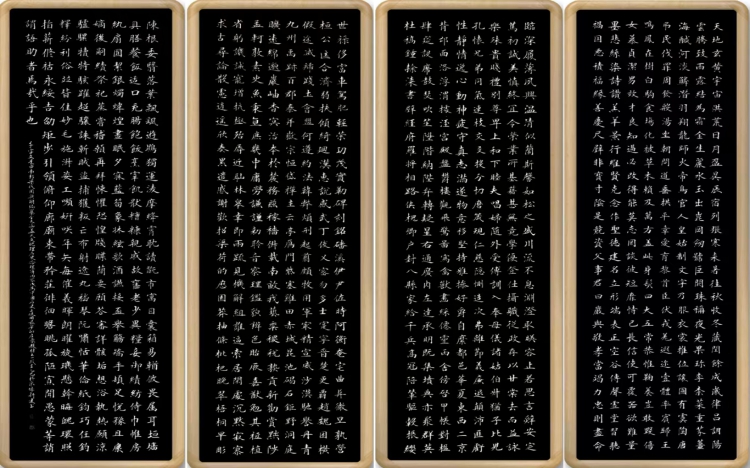 天地玄黃宇宙洪荒日月盈昃辰宿列張寒來暑往秋收冬藏閏餘成歲律呂調陽
雲騰致雨露結為霜金生麗水玉出崑岡劍號巨闕珠稱夜光果珍李柰菜重芥薑
海鹹河淡鱗潛羽翔龍師火帝鳥官人皇始制文字乃服衣裳推位讓國有虞陶唐
弔民伐罪周發殷湯坐朝問道垂拱平章愛育黎首臣伏戎羌遐邇壹體率賓歸王
鳴鳳在樹白駒食場化被草木賴及萬方蓋此身髮四大五常恭惟鞠養豈敢毀傷
女慕貞潔男效才良知過必改得能莫忘罔談彼短靡恃己長信使可覆器欲難量
墨悲絲染詩讚羔羊景行維賢克念作聖德建名立形端表正空谷傳聲虛堂習聽
禍因惡積福緣善慶尺璧非寶寸陰是競資父事君曰嚴與敬孝當竭力忠則盡命
臨深履薄夙興溫凊似蘭斯馨如松之盛川流不息淵澄取映容止若思言辭安定
篤初誠美慎終宜令榮業所基籍甚無竟學優登仕攝職從政存以甘棠去而益詠
樂殊貴賤禮別尊卑上和下睦夫唱婦隨外受傅訓入奉母儀諸姑伯叔猶子比兒
孔懷兄弟同氣連枝交友投分切磨箴規仁慈隱惻造次弗離節義廉退顛沛匪虧
性靜情逸心動神疲守真志滿逐物意移堅持雅操好爵自縻都邑華夏東西二京
背邙面洛浮渭據涇宮殿盤鬱樓觀飛驚圖寫禽獸畫綵仙靈丙舍傍啟甲帳對楹
肆筵設席鼓瑟吹笙陞階納陛弁轉疑星右通廣內左達承明既集墳典亦聚群英
杜稿鍾隸漆書壁經府羅將相路俠槐卿戶封八縣家給千兵高冠陪輦驅轂振纓
世祿侈富車駕肥輕策功茂實勒碑刻銘磻溪伊尹佐時阿衡奄宅曲阜微旦孰營
桓公匡合濟弱扶傾綺迴漢惠說感武丁俊乂密勿多士寔寧晉楚更霸趙魏困橫
假途滅虢踐土會盟何遵約法韓弊煩刑起翦頗牧用軍最精宣威沙漠馳譽丹青
九州禹跡百郡秦并嶽宗恆岱禪主云亭雁門紫塞雞田赤城昆池碣石鉅野洞庭
曠遠綿邈巖岫杳冥治本於農務茲稼穡俶載南畝我藝黍稷稅熟貢新勸賞黜陟
孟軻敦素史魚秉直庶幾中庸勞謙謹敕聆音察理鑑貌辨色貽厥嘉猷勉其祗植
省躬譏誡寵增抗極殆辱近恥林皋幸即兩疏見機解組誰逼索居閒處沉默寂寥
求古尋論散慮逍遙欣奏累遣慼謝歡招渠荷的歷園莽抽條枇杷晚翠梧桐早凋
陳根委翳落葉飄颻遊鵾獨運凌摩絳霄耽讀翫市寓目囊箱易輶攸畏屬耳垣牆
具膳餐飯適口充腸飽飫烹宰飢厭糟糠親戚故舊老少異糧妾御績紡侍巾帷房
紈扇圓潔銀燭煒煌晝眠夕寐藍筍象床絃歌酒讌接杯舉觴矯手頓足悅豫且康
嫡後嗣續祭祀烝嘗稽顙再拜悚懼恐惶牋牒簡要顧答審詳骸垢想浴執熱願涼
驢騾犢特駭躍超驤誅斬賊盜捕獲叛亡布射遼丸嵇琴阮嘯恬筆倫紙鈞巧任釣
釋紛利俗並皆佳妙毛施淑姿工顰妍笑年矢每催曦暉朗曜璇璣懸斡晦魄環照
指薪修祜永綏吉劭矩步引領俯仰廊廟束帶矜莊徘徊瞻眺孤陋寡聞愚蒙等誚
謂語助者焉哉乎也